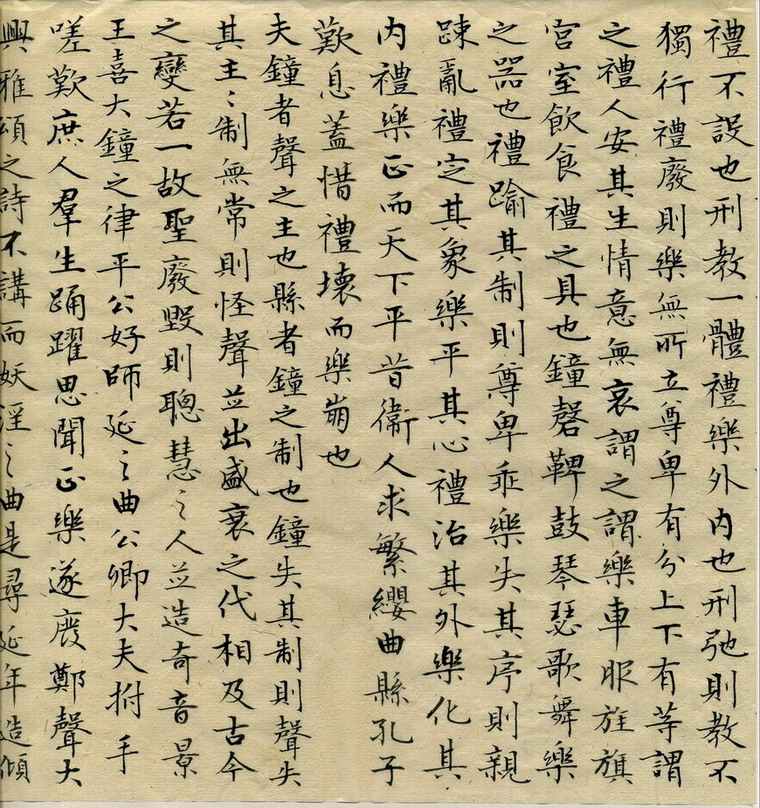 禮不設也刑教一體禮樂外内也刑弛則教不
獨行禮廢則樂無所立尊卑有分上下有等謂
之禮人安其生情意無哀謂之謂樂車服旌旗
宮室飲食禮之具也鐘磬鞞鼓琴瑟歌舞樂
之器也禮踰其制則尊卑乖樂失其序則親
踈亂禮定其象樂平其心禮治其外樂化其
内禮樂正而天下平昔衞人求繁纓曲縣孔子
歎息蓋惜禮壞而樂崩也
夫鐘者聲之主也縣者鐘之制也鐘失其制則聲失
其主〻制無常則怪聲並出盛衰之代相及古今
之變若一故聖廢毀則聰慧〻人並造奇音景
王喜大鐘之律平公好師延〻曲公卿大夫拊手
嗟歎庶人羣生踊躍思聞正樂遂廢鄭聲大
興雅頌之詩不講而妖淫〻曲是尋延年造傾